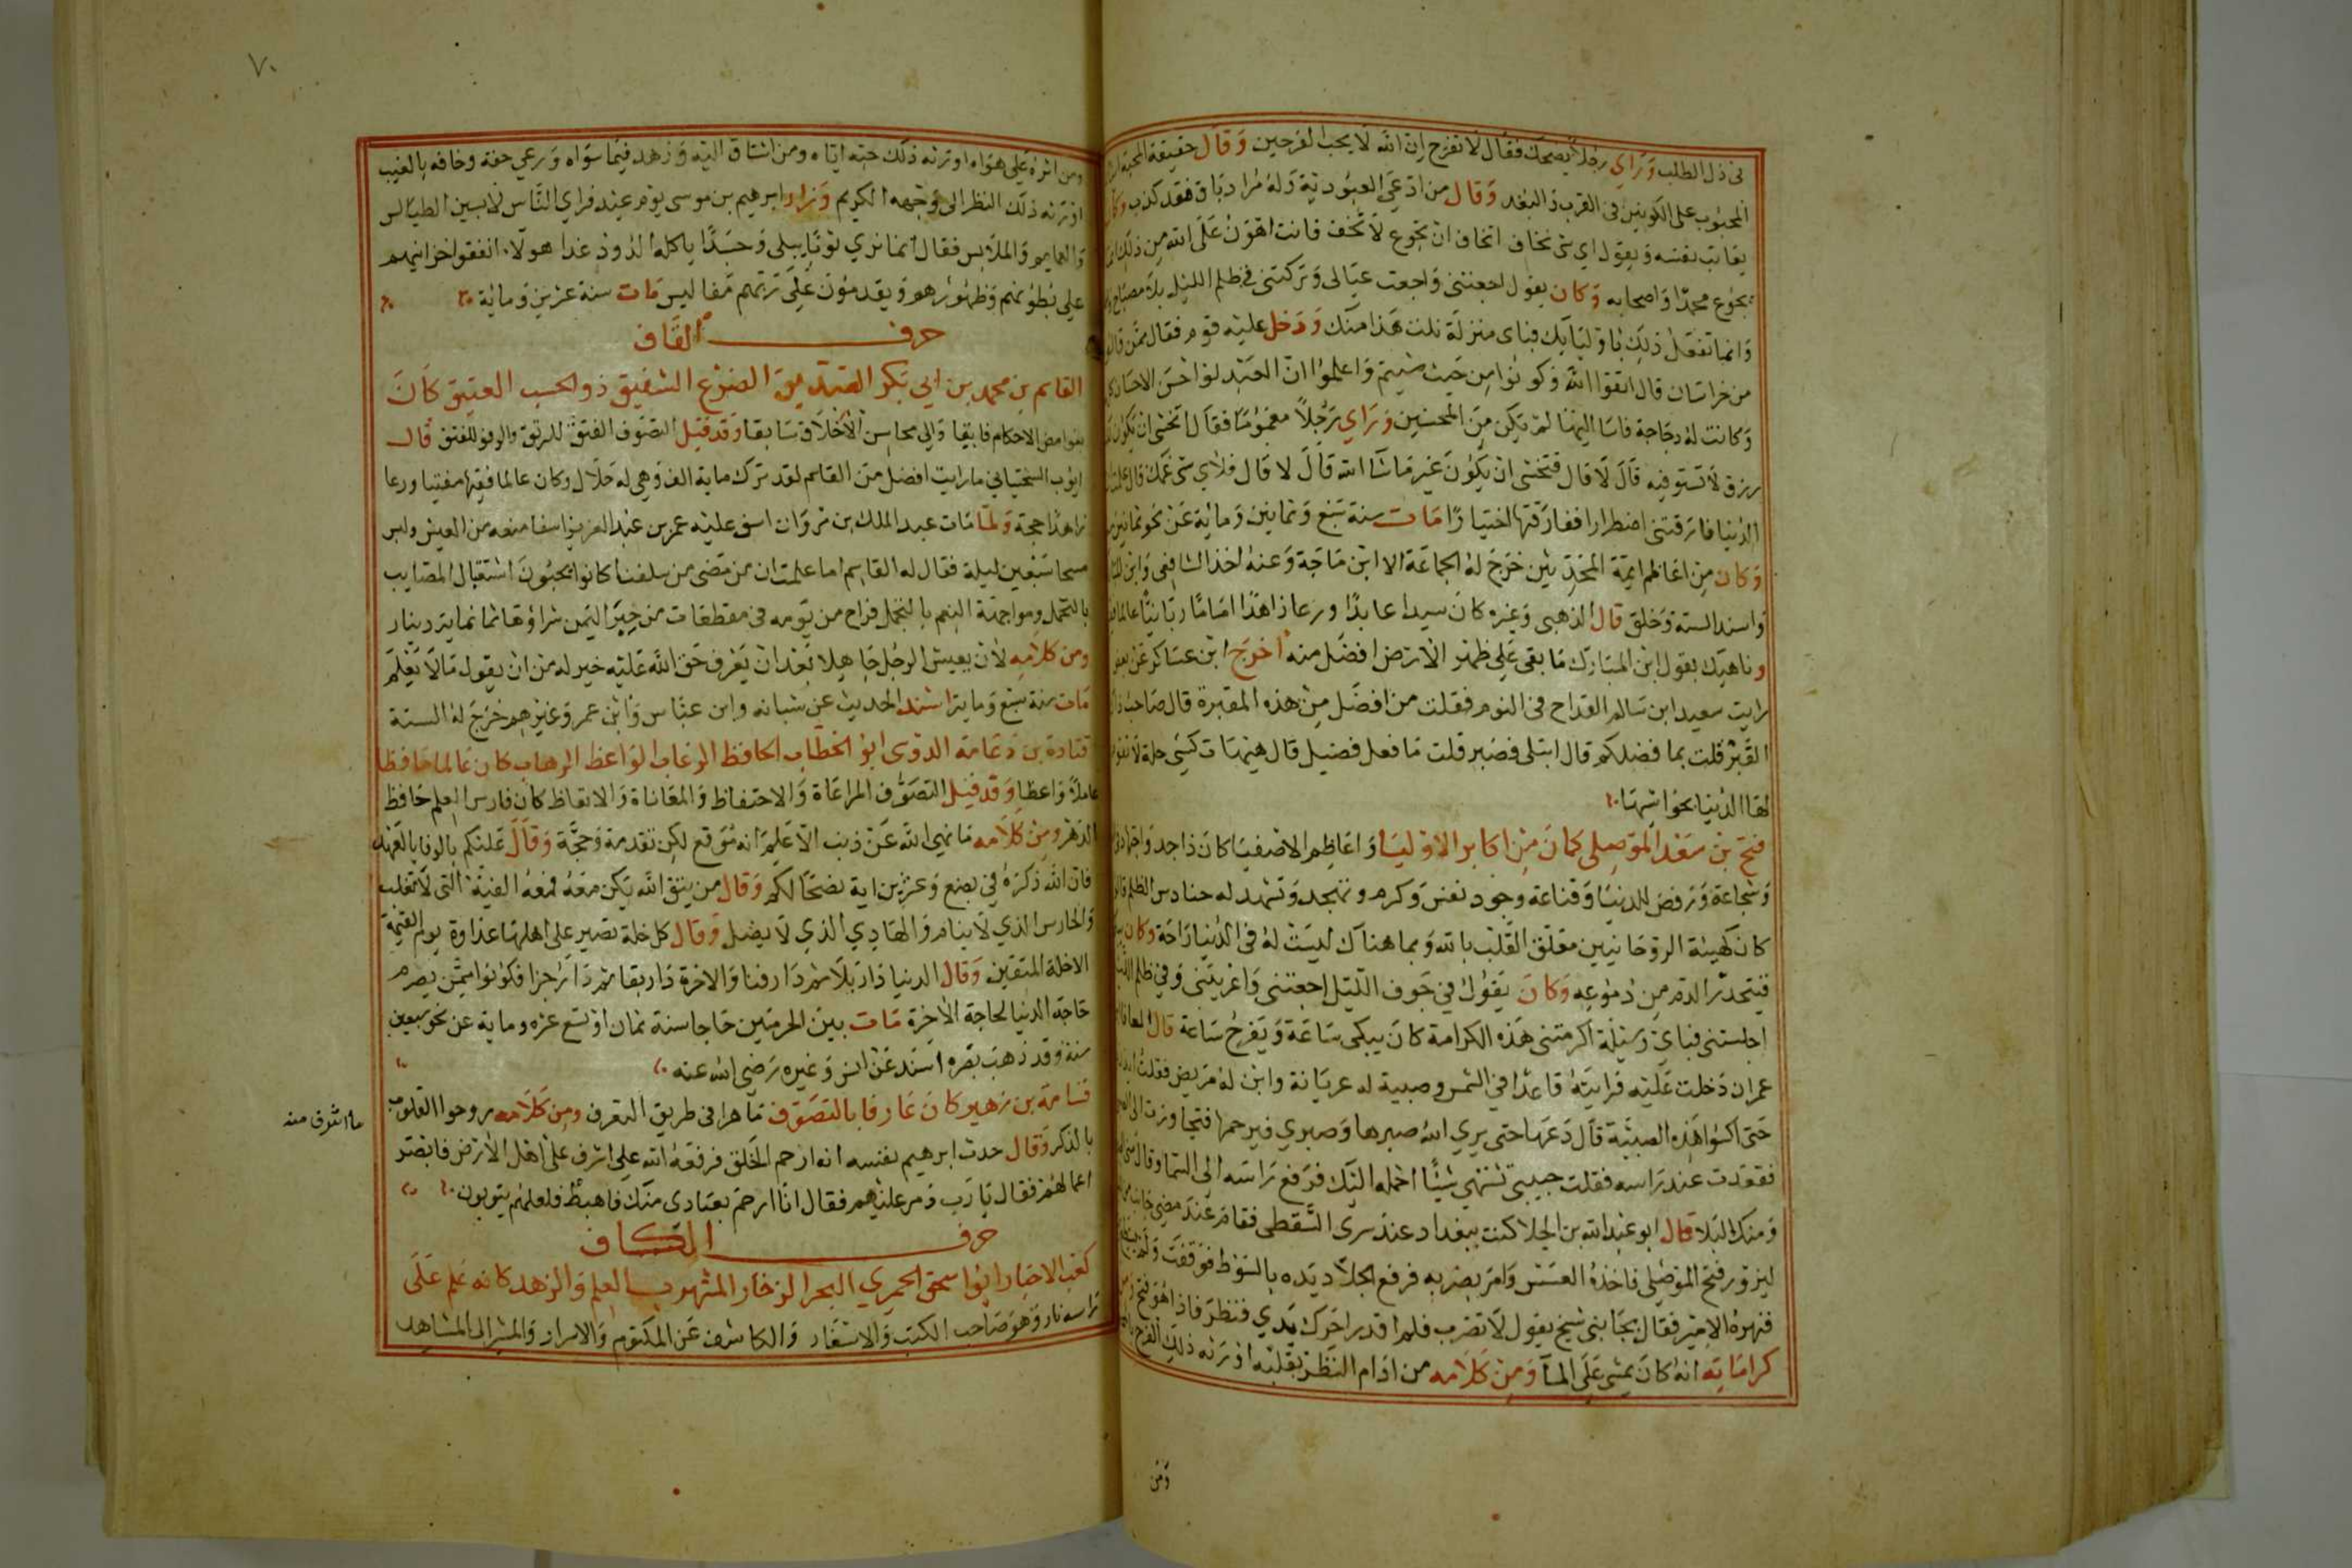 في ذل الطلب وراي رجلا يضحك فقال لا تفرح ان الله لا يحب الفرحين وقال حقيقة المحبة
المحبوب على الكونين في القرب والبعد وقال من ادعى العبودية وله مراد باق فقد كذب
يعاتب نفسه ويقول اي شي تخاف اتخاف ان تجوع لا تخف فانت اهون على الله من ذلك
يجوع محمدا واصحابه وكان يقول اجعتني واجعت عيالي وتركتني في ظلم الليل بلا مصباح
وانما تفعل ذلك باوليائك فباي منزلة نلت هذا منك ودخل عليه قوم فقال ممن
من خراسان قال اتقوا الله وكونوا من حيث شيتم واعلموا ان العبد لو احسن الاحسان
وكانت له دجاجة فاسا اليها لم يكن من المحسنين وراي رجلا مغموما فقال اتخشى ان يكون
رزق لا تستوفيه قال لا قال فتخشى ان يكون غير ما شا الله قال لا قال فلاي شي غمك
الدنيا فارقتني اضطرارا ففارقتها اختيارا مات سنة سبع وثمانين ومائة عن نحو ثمانين
وكان من اعاظم ايمة المحدثين خرج له الجماعة الا ابن ماجة وعنه اخذ الشافعي
واسند الستة وخلق قال الذهبي وغيره كان سيدا عابدا ورعا زاهدا اماما ربانيا عالما
وناهيك بقول ابن المبارك ما بقي على ظهر الارض افضل منه اخرج ابن عساكر عن
رايت سعيد ابن سالم القداح في النوم فقلت من افضل من هذه المقبرة قال صاحب
القبر قلت بما فضلكم قال ابتلى فصبر قلت ما فعل فضيل قال هيهات كسي حلة لا
لها الدنيا بحواشيها
فتح بن سعد الموصلي كان من اكابر الاوليا واعاظم الاصفيا كان ذا جد واجتهاد
وشجاعة ورفض للدنيا وقناعة وجود نفس وكرم وتهجد وتشهد له حنادس الظلم
كان كهيئة الروحانيين معلق القلب بالله وبما هناك ليست له في الدنيا راحة وكان
فيتحدر الدم من دموعه وكان يقول في جوف الليل اجعتني واعريتني وفي ظلم
اجلستني فباي وسيلة اكرمتني هذه الكرامة كان يبكي ساعة ويفرح ساعة قال
عمران دخلت عليه فرايته قاعدا في الشمس وصبية له عريانة وابن له مريض فقلت
حتى اكسوا هذه الصبية قال دعها حتى يري الله صبرها وصبري فيرحمها فتجاوزت الى
فقعدت عند راسه فقلت حبيبي تشتهي شيئا احمله اليك فرفع راسه الى السما وقال
ومنك البلا قال ابو عبد الله بن الجلا كنت ببغداد عند سري السقطي فقام عند مضي
ليزور فتح الموصلي فاخذه العسس وامر بضربه فرفع الجلاد يده بالسوط فوقفت
فنهره الامير فقال بجانبي شيخ يقول لا تضرب فلم اقدر احرك يدي فنظر فاذا هو فتح
كراماته انه كان يمشي على الما ومن كلامه من ادام النظر بقلبه اورثه ذلك الفرح
ومن
٧٠
ومن اثره على هواه اورثه ذلك حبه اياه ومن اشتاق اليه وزهد فيما سواه ورعي حقه وخافه بالغيب
اورثه ذلك النظر الى وجهه الكريم وزار ابرهيم بن موسى يوم عيد فراي الناس لابسين الطيالس
والعمايم والملابس فقال انما نري ثوبا يبلى وجسدا ياكله الدود غدا هولا انفقوا خزائنهم
على بطونهم وظهورهم ويقدمون على ربهم مفاليس مات سنة عشرين ومائة
حرف القاف
القاسم بن محمد بن ابي بكر الصديق الضرع الشفيق ذو الحسب العتيق كان
بغوامض الاحكام فايقا والى محاسن الاخلاق سابقا وقد قيل التصوف الفتق للرتق والرفو للفتق قال
ايوب السختياني ما رايت افضل من القاسم لقد ترك ماية الف وهي له حلال وكان عالما فقيها مفتيا ورعا
زاهدا حجة ولما مات عبد الملك بن مروان اسف عليه عمر بن عبد العزيز اسفا منعه من العيش ولبس
مسحا سبعين ليلة فقال له القاسم اما علمت ان من مضى من سلفنا كانوا يحبون استقبال المصايب
بالتجمل ومواجهة النعم بالتجمل فراح من يومه في مقطعات من حبر اليمن شراؤها ثمانماية دينار
ومن كلامه لان يعيش الرجل جاهلا بعد ان يعرف حق الله عليه خير له من ان يقول ما لا يعلم
مات سنة سبع وماية اسند الحديث عن وابن عباس وابن عمر وغيرهم خرج له الستة
قتادة بن دعامة الدوى ابو الخطاب الحافظ الرغاب الواعظ الرهاب كان عالما حافظا
عاملا واعظا وقد قيل التصوف المراعاة والاحتفاظ والمعاناة والاتعاظ كان فارس العلم حافظ
الدهر ومن كلامه ما نهي الله عن ذنب الا علم انه موقع لكن تقدمة وحجة وقال عليكم بالوفا بالعهد
فان الله ذكره في بضع وعشرين اية نصحا لكم وقال من يتق الله يكن معه فمعه الفئة التي لا تغلب
والحارس الذي لا ينام والهادي الذي لا يضل وقال كل خلة تصير على اهلها عداوة يوم القيمة
الاخلة المتقين وقال الدنيا دار بلا ثم دار فنا والاخرة دار بقا ثم دار جزا فكونوا ممن يصرم
حاجة الدنيا لحاجة الاخرة مات بين الحرمين حاجا سنة ثمان او تسع عشره وماية عن نحو سبعين
سنة وقد ذهب بصره اسند عن انس وغيره رضي الله عنه
قسامة بن زهير كان عارفا بالتصوف ماهرا في طريق التعرف ومن كلامه روحوا القلوب
بالذكر وقال حدث ابرهيم نفسه انه ارحم الخلق فرفعه الله على اشرف على اهل الارض فابصر
اعمالهم فقال يا رب دمر عليهم فقال انا ارحم بعبادي منك فاهبط فلعلهم يتوبون
حرف الكاف
كعب الاحبار ابو اسحق الحميري البحر الزخار المشهور بالعلم والزهد كانه علم على
راسه نار وهو صاحب الكتب والاسفار والكاشف عن المكتوم والاسرار والمشير الى المشاهد